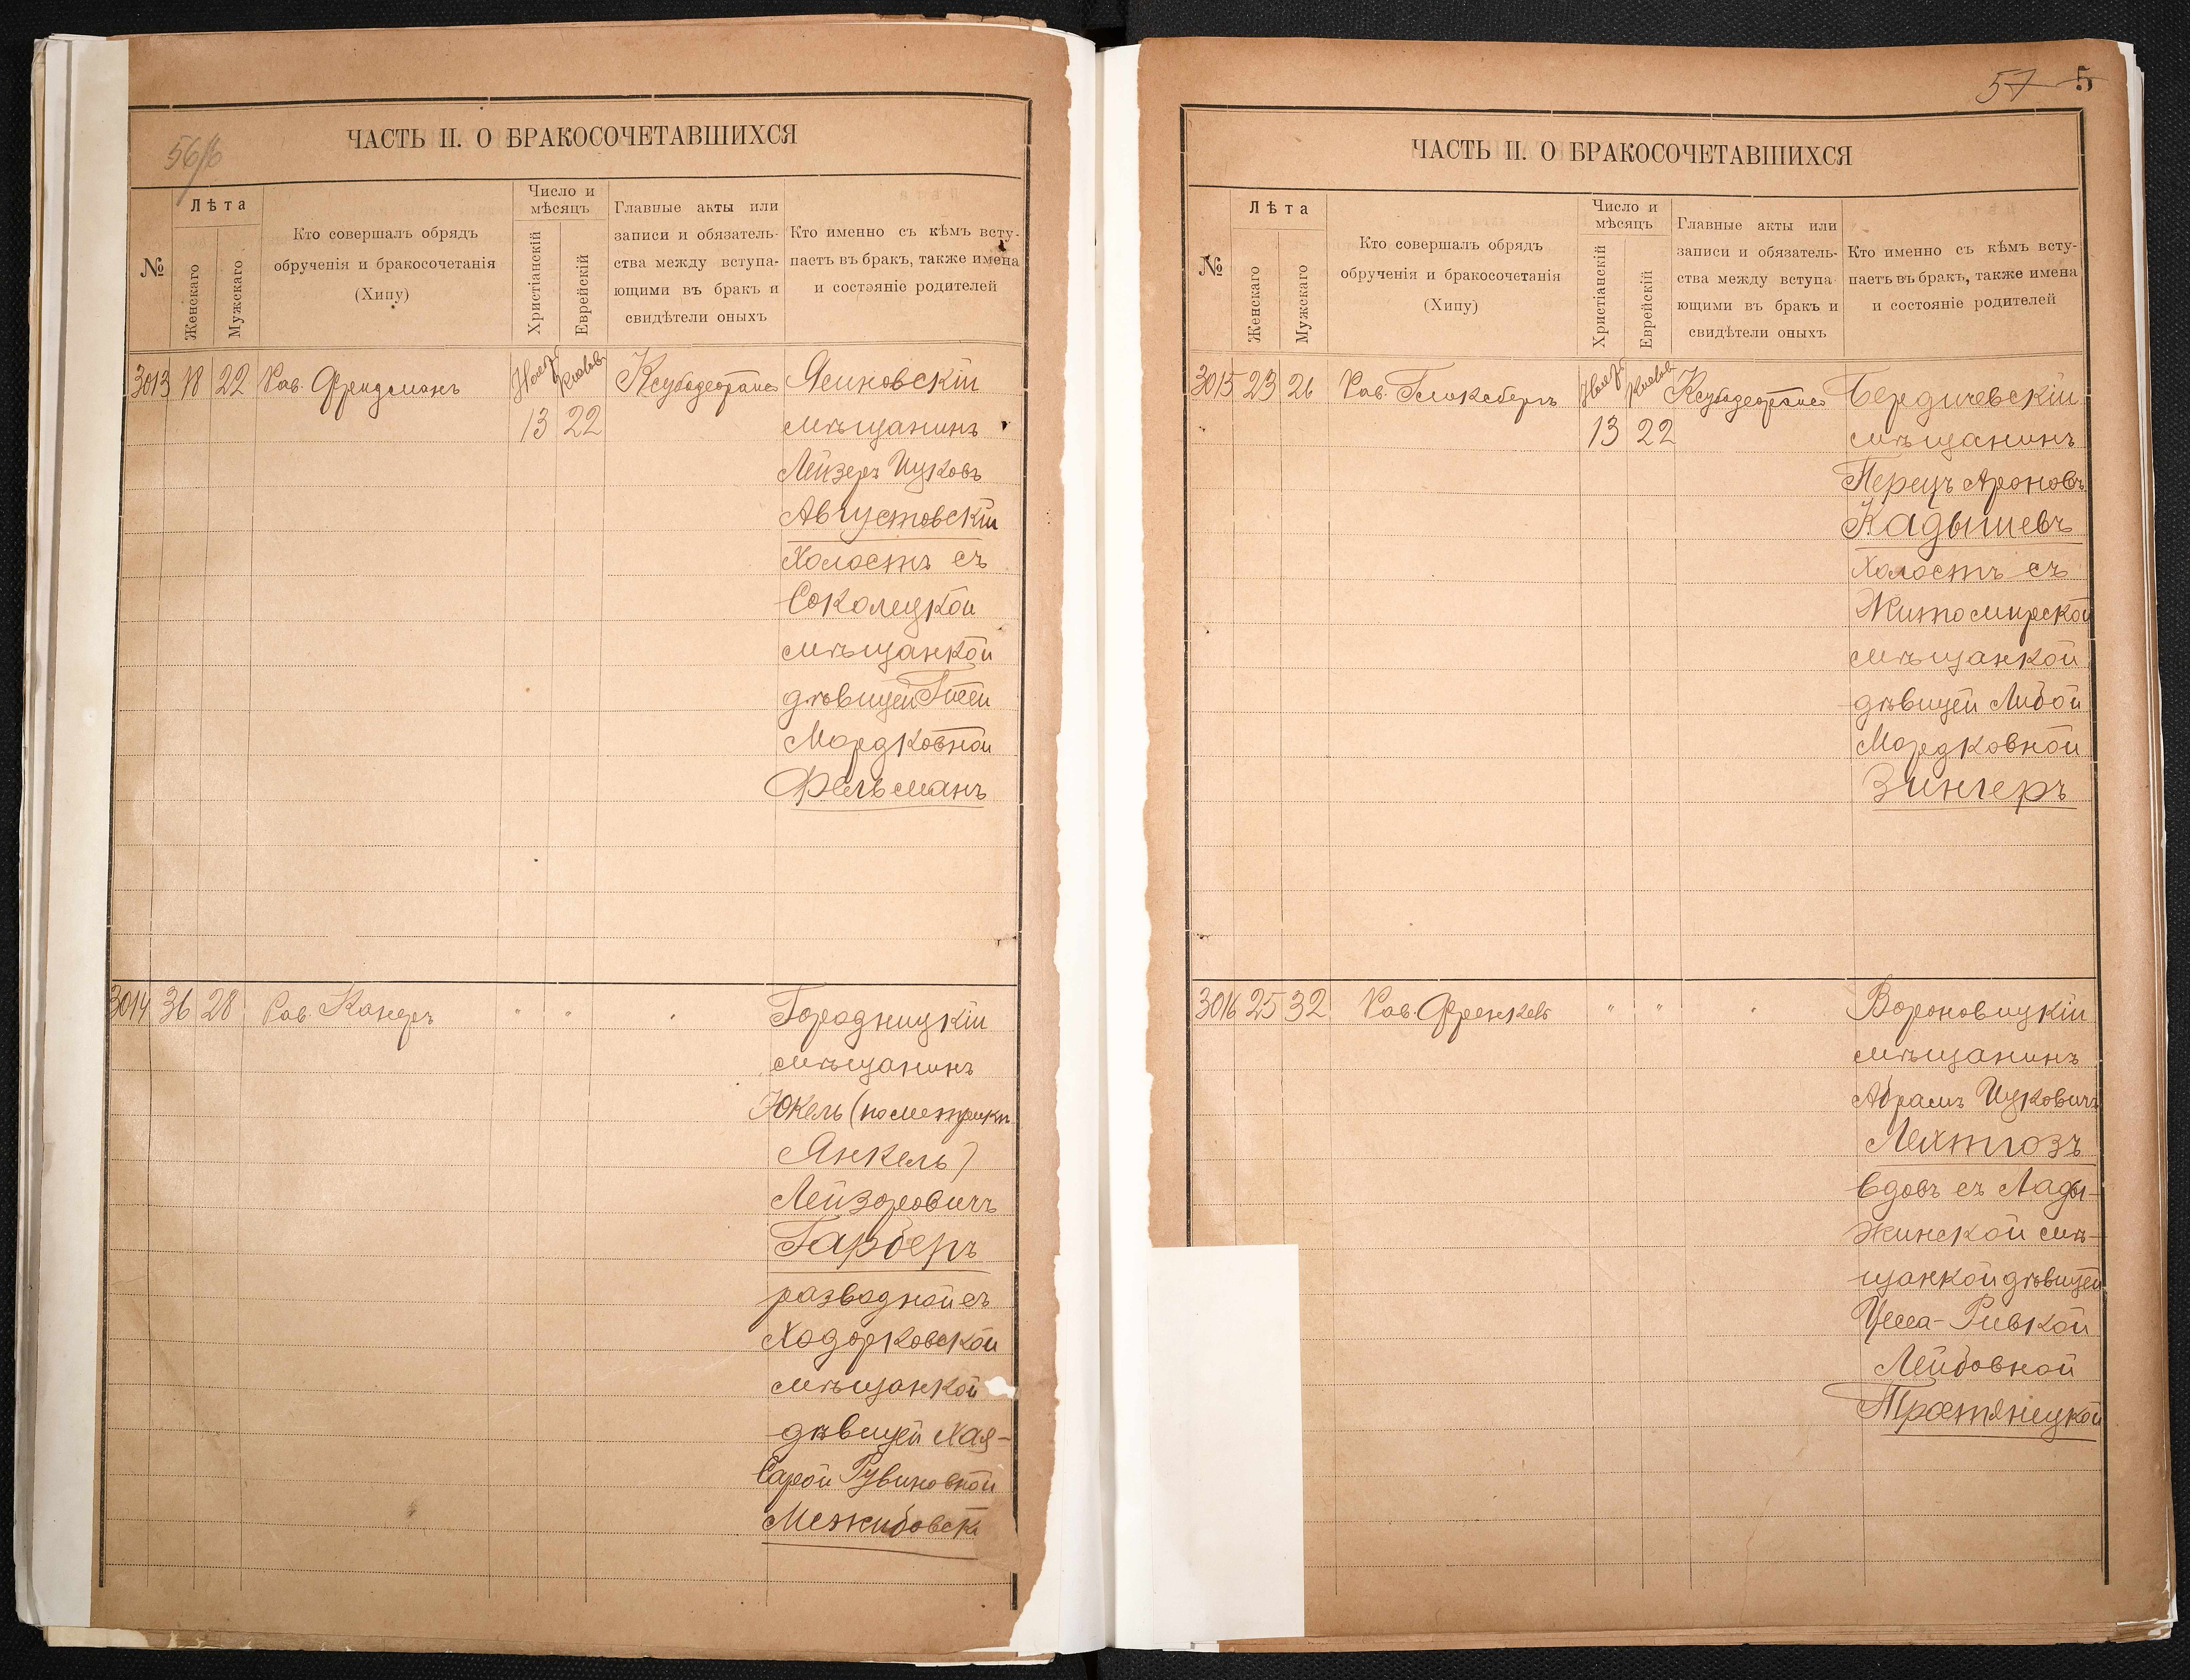 56/6
ЧАСТЬ II. О БРАКОСОЧЕТАВШИХСЯ
№
Лѣта
Женскаго
Мужскаго
Кто совершалъ обрядъ
обрученія и бракосочетанія
(Хипу)
Число и
мѣсяцъ
Христіанскій
Еврейскій
Главные акты или
записи и обязатель-
ства между вступа-
ющими въ бракъ и
свидѣтели оныхъ
Кто именно съ кѣмъ всту-
паетъ въ бракъ, также имена
и состояніе родителей
3013 18 22 Рав. Фридманъ
13 22
мѣщанинъ
Лейзеръ Ицковъ
Августовскій
Холостъ съ
Соколецкой
мѣщанкой
дѣвицей
Мордковной
Фельманъ
3014 36 28 Рав. Канеръ " " "
Городницкій
мѣщанинъ
Юкель (по метрики
Янкель)
Лейзоровичъ
Гарберъ
разводной съ
Ходорковской
мѣщанкой
дѣвицей Хая-
Сарой Рувиновной
Межибовск
57 5
ЧАСТЬ II. О БРАКОСОЧЕТАВШИХСЯ
№
Лѣта
Женскаго
Мужскаго
Кто совершалъ обрядъ
обрученія и бракосочетанія
(Хипу)
Число и
мѣсяцъ
Христіанскій
Еврейскій
Главные акты или
записи и обязатель-
ства между вступа-
ющими въ бракъ и
свидѣтели оныхъ
Кто именно съ кѣмъ всту-
паетъ въ бракъ, также имена
и состояніе родителей
3015 23 26 Рав. Гликсбергъ
13 22
Бердичевскій
мѣщанинъ
Перецъ Ароновъ
Кадышевъ
Холостъ съ
Житомирской
мѣщанкой
дѣвицей Либой
Мордковной
Зингеръ
3016 25 32 Рав. Френкель " " "
Вороновицкій
мѣщанинъ
Абрамъ Ицковичъ
Лехтгозъ
вдовъ съ Лады-
жинской мѣ-
щанкой дѣвицей
Ривкой
Лейбовной
Тростянецкой